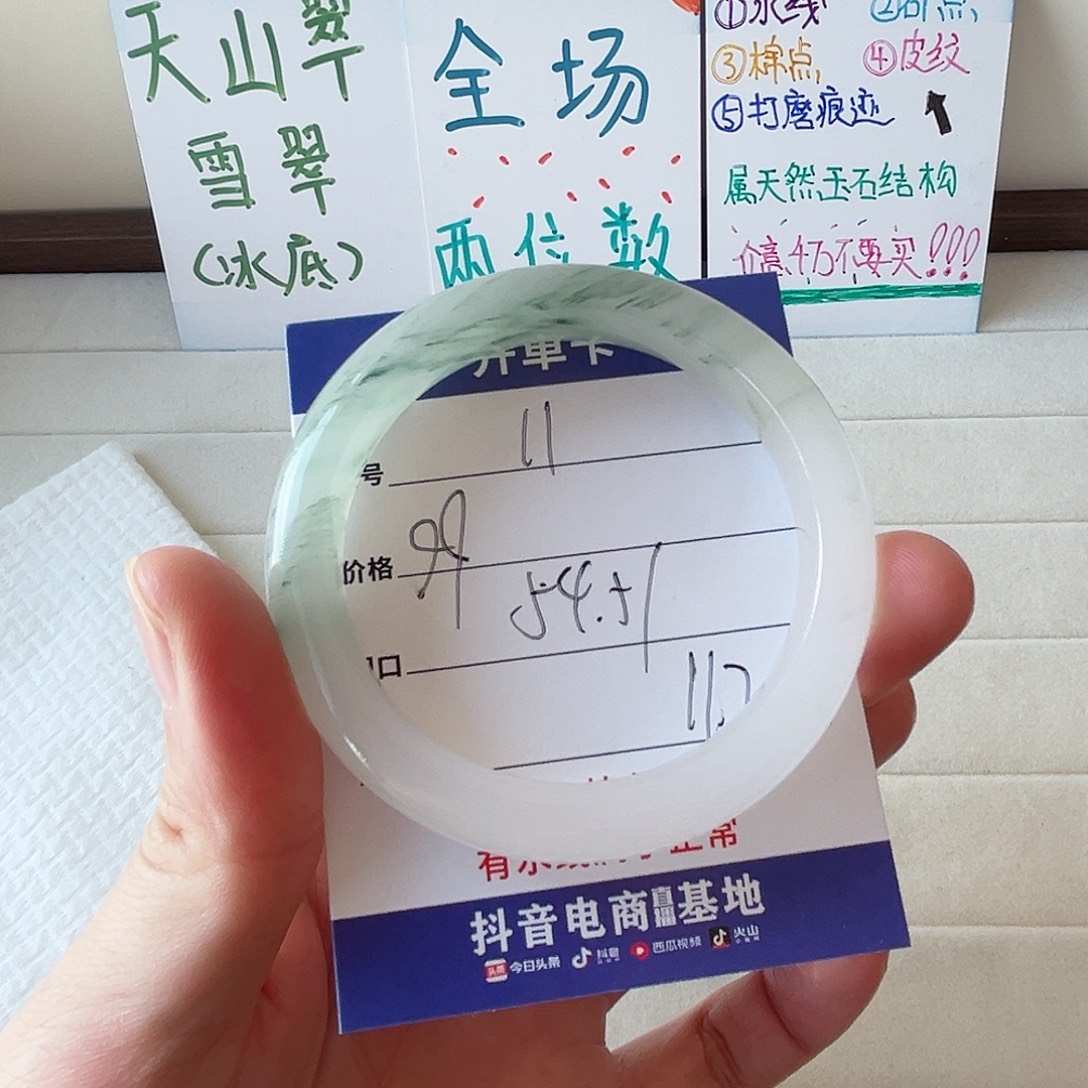 天山翠
雪翠
(冰底)
全场
两位数
①水线 ②石点
③棉点 ④皮纹
⑤打磨痕迹
属天然玉石结构
介意勿不要买!!!
开单卡
号 11
价格 99
54.5
口
11.7
常
抖音电商直播基地
头条 今日头条 抖音 西瓜视频 火山